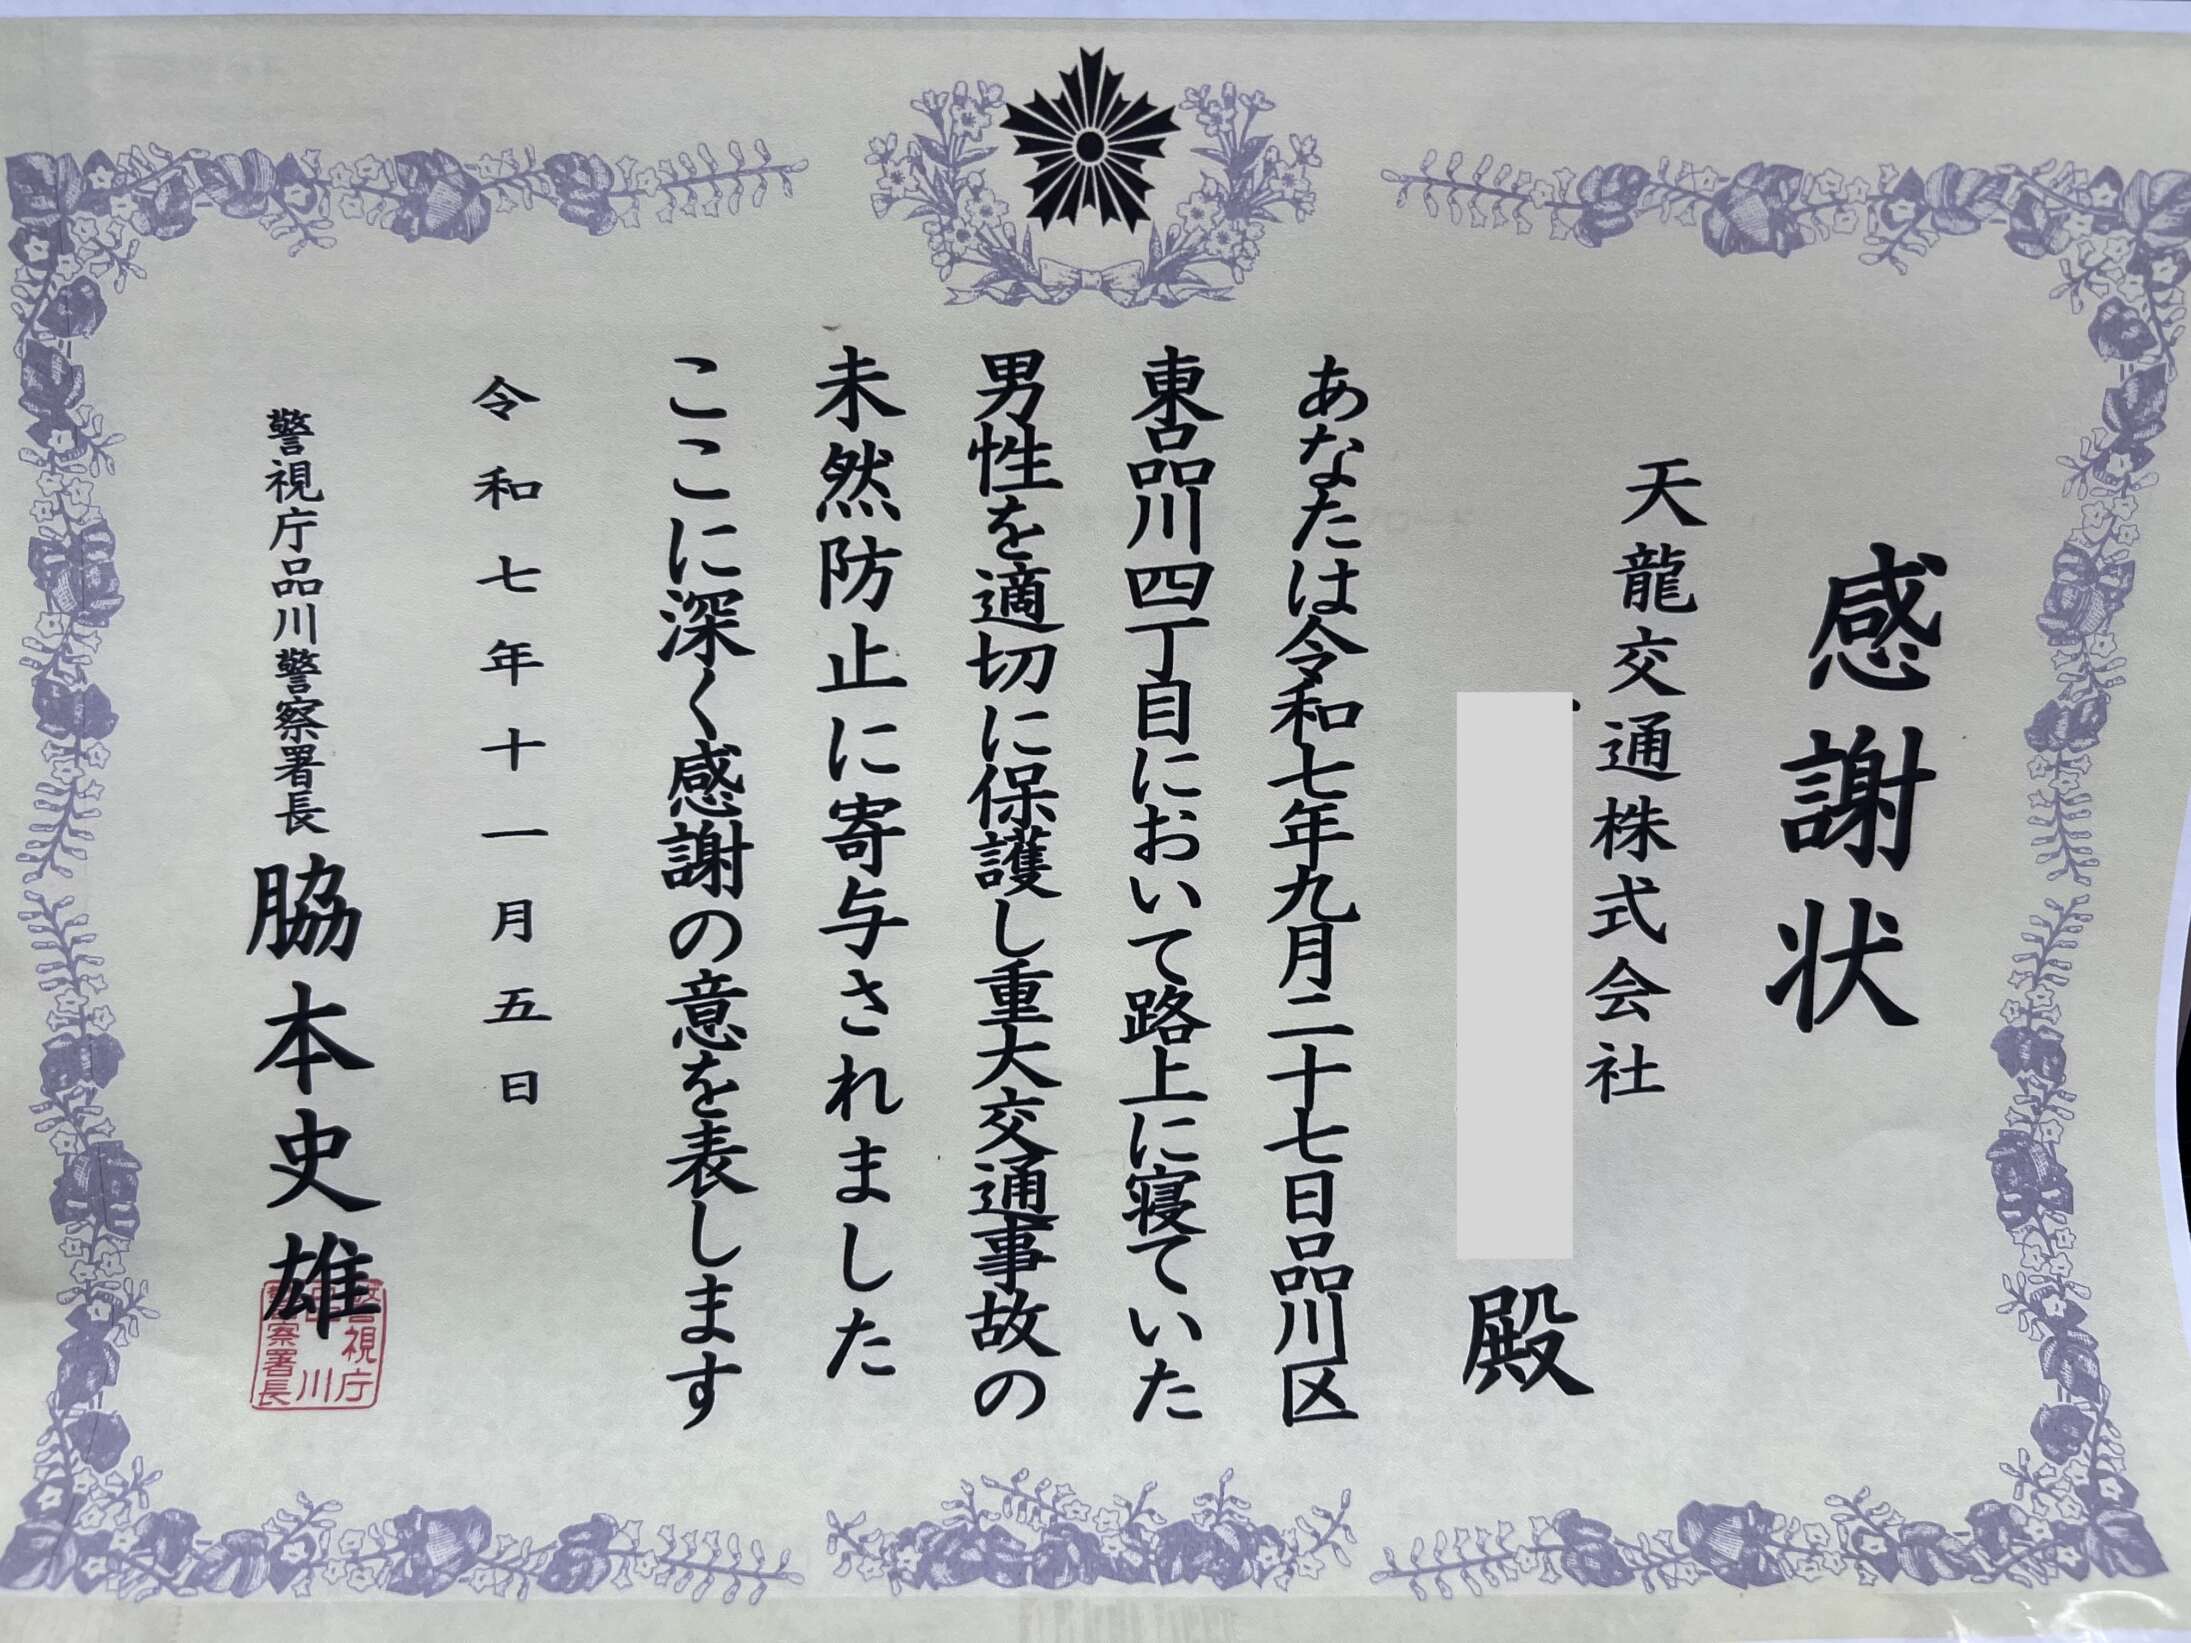 感謝状
天龍交通株式会社
殿
あなたは令和七年九月二十七日品川区
東品川四丁目において路上に寝ていた
男性を適切に保護し重大交通事故の
未然防止に寄与されました
ここに深く感謝の意を表します
令和七年十一月五日
警視庁品川警察署長 脇本史雄
警視庁
品川
警察署長